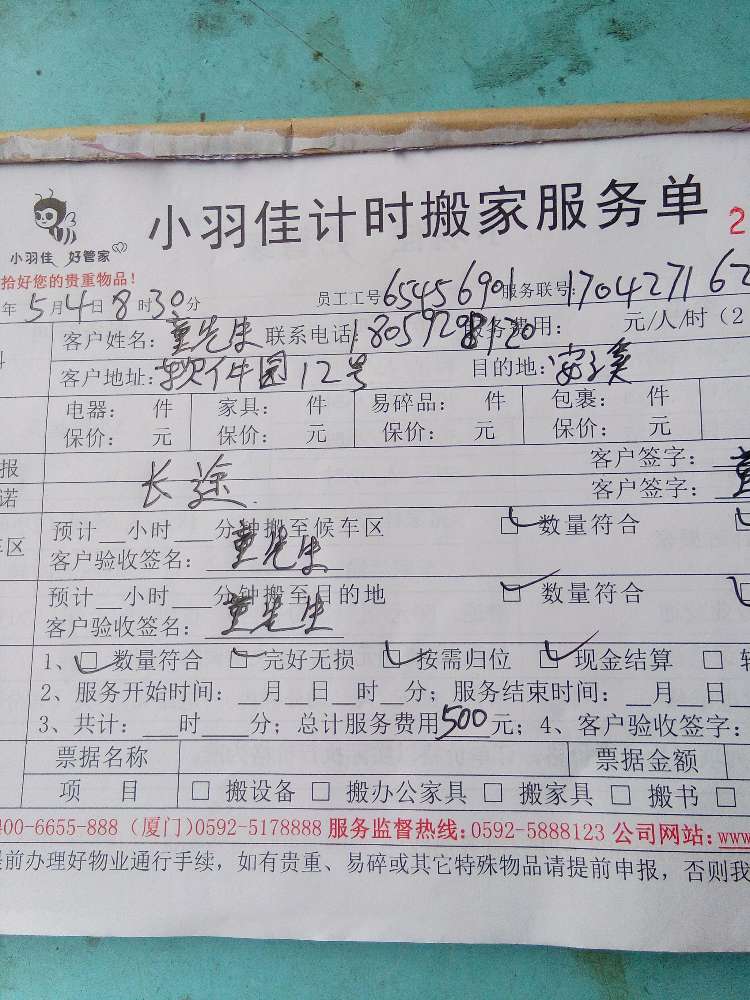 小羽佳计时搬家服务单 2
小羽佳 好管家
拾好您的贵重物品!
年5月4日8时30分 员工工号65456901服务联号:170427162
客户姓名:童先生 联系电话:18059298120服务费用: 元/人/时(2
客户地址:软件园12号 目的地:安溪
电器: 件 家具: 件 易碎品: 件 包裹: 件
保价: 元 保价: 元 保价: 元 保价: 元
报 客户签字:
诺 长途 客户签字:童
车区 预计__小时___分钟搬至候车区 ☑数量符合
客户验收签名:童先生
预计__小时___分钟搬至目的地 ☑数量符合
客户验收签名:童先生
1、☑数量符合 ☑完好无损 ☑按需归位 ☑现金结算 □
2、服务开始时间:__月__日__时__分;服务结束时间:__月__日
3、共计:___时____分;总计服务费用500元;4、客户验收签字:
票据名称 票据金额
项 目 □ 搬设备 □ 搬办公家具 □ 搬家具 □ 搬书 □
400-6655-888(厦门)0592-5178888 服务监督热线:0592-5888123 公司网站:www
前办理好物业通行手续,如有贵重、易碎或其它特殊物品请提前申报,否则我